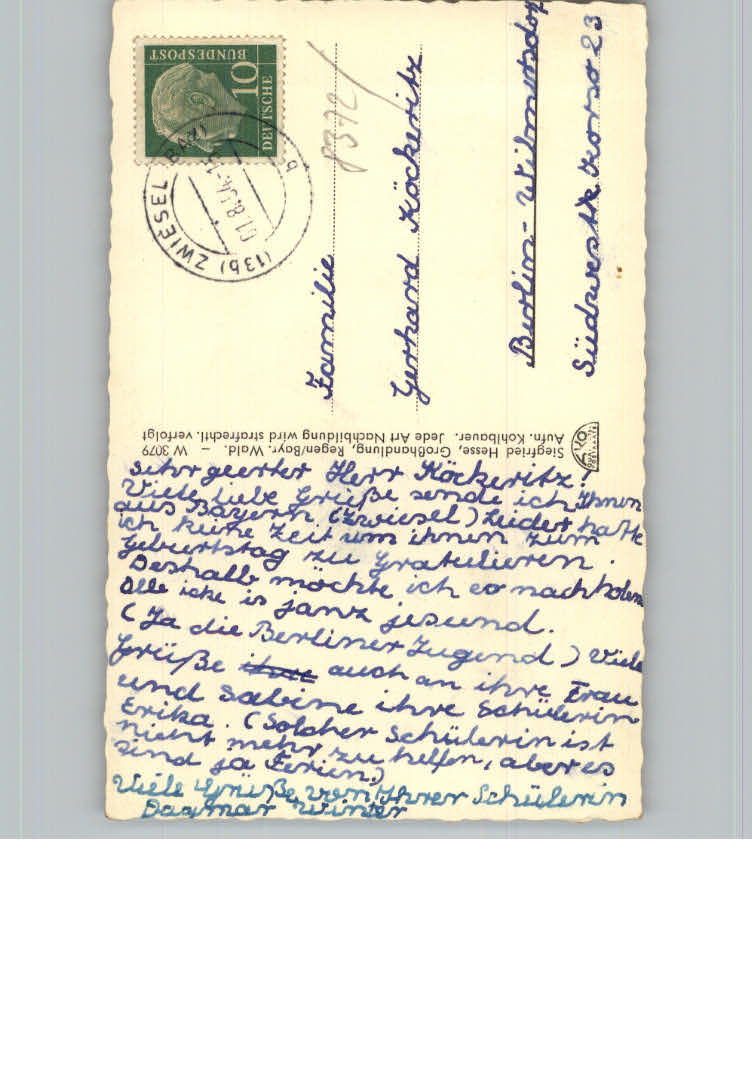 DEUTSCHE
BUNDESPOST
10
(13b) ZWIESEL (BAY)
01.8.54
b
8372
Familie
Gerhard Köckeritz
Berlin-Wilmersdorf
Südwestk Korso 23
Siegfried Hesse, Großhandlung, Regen/Bayr. Wald. – W 3079
Aufn. Kohlbauer. Jede Art Nachbildung wird strafrechtl. verfolgt
Sehr geerter Herr Köckeritz!
Viele liebe Grüße sende ich Ihnen
aus Bayern. (Zwiesel) Leider hatte
ich keine Zeit um ihnen zum
Geburtstag zu gratulieren.
Deshalb möchte ich es nachholen
Olle icke is janz jesund.
(Ja die Berliner Jugend) Viele
Grüße auch an ihre Frau
und Sabine ihre Schülerin
Erika. (Solcher Schülerin ist
nicht mehr zu helfen, aber es
sind ja Ferien.)
Viele Grüße von Ihrer Schülerin
Dagmar Winter